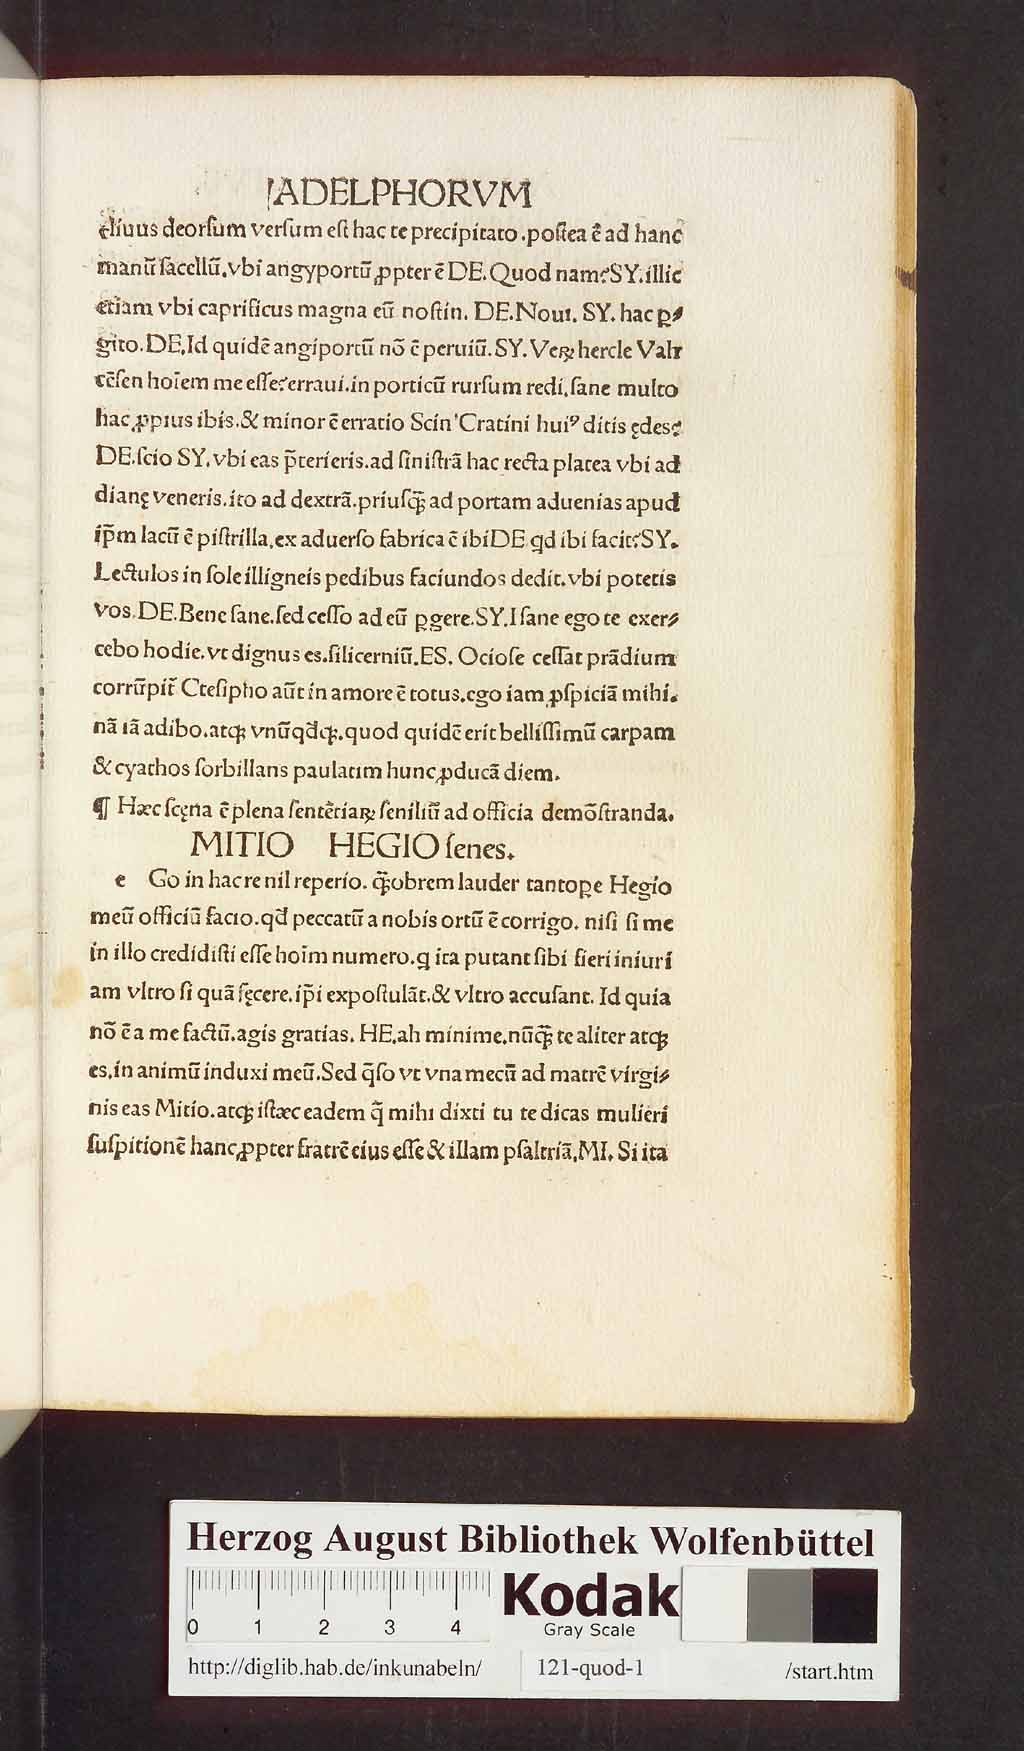 ADELPHORVM
cliuus deorſum verſum eſt hac te precipitato.poſtea ē ad hanc
manū ſacellū.vbi angyportū ꝓpter ē DE.Quod nam?SY.illic
etiam vbi caprificus magna eū noſtin. DE.Noui. SY. hac ꝑ⸗
gito.DE.Id quidē angiportū nō ē peruiū.SY.Veꝝ hercle Vah
cēſen hoīem me eſſe?erraui.in porticū rurſum redi.ſane multo
hac ꝓpius ibis.& minor ē erratio Scin'Cratini huiꝰ ditis ędes?
DE.ſcio SY.vbi eas p̄terieris.ad ſiniſtrā hac recta platea vbi ad
dianę veneris.ito ad dextrā.priuſꝙ̄ ad portam aduenias apud
ip̄m lacū ē piſtrilla.ex aduerſo fabrica ē ibi DE qd ibi facit?SY.
Lectulos in ſole illigneis pedibus faciundos dedit.vbi potetis
vos.DE.Bene ſane.ſed ceſſo ad eū ꝑgere.SY.I ſane ego te exer⸗
cebo hodie.vt dignus es.ſilicerniū.ES. Ocioſe ceſſat prādium
corrūpit̄ Cteſipho aūt in amore ē totus.ego iam ꝓſpiciā mihi.
nā iā adibo.atqꝫ vnūqd̄qꝫ.quod quidē erit belliſſimū carpam
& cyathos ſorbillans paulatim hunc ꝓducā diem.
¶ Hæc ſcęna ē plena ſentētiaꝝ ſeniliū ad officia demōſtranda.
MITIO HEGIO ſenes.
e Go in hac re nil reperio. ꝙ̄obrem lauder tantope Hegio
meū officiū facio.qd̄ peccatū a nobis ortū ē corrigo. niſi ſi me
in illo credidiſti eſſe hoīm numero.q ita putant ſibi fieri iniuri
am vltro ſi quā fęcere.ip̄i expoſtulāt.& vltro accuſant. Id quia
nō ē a me factū.agis gratias. HE.ah minime.nūꝙ̄ te aliter atqꝫ
es.in animū induxi meū.Sed q̄ſo vt vna mecū ad matrē virgi⸗
nis eas Mitio.atqꝫ iſtæc eadem q̄ mihi dixti tu te dicas mulieri
ſuſpitionē hanc ꝓpter fratrē eius eſſe & illam pſaltriā.MI. Si ita
Herzog August Bibliothek Wolfenbüttel
0 1 2 3 4
Kodak
Gray Scale
http://diglib.hab.de/inkunabeln/ 121-quod-1 /start.htm